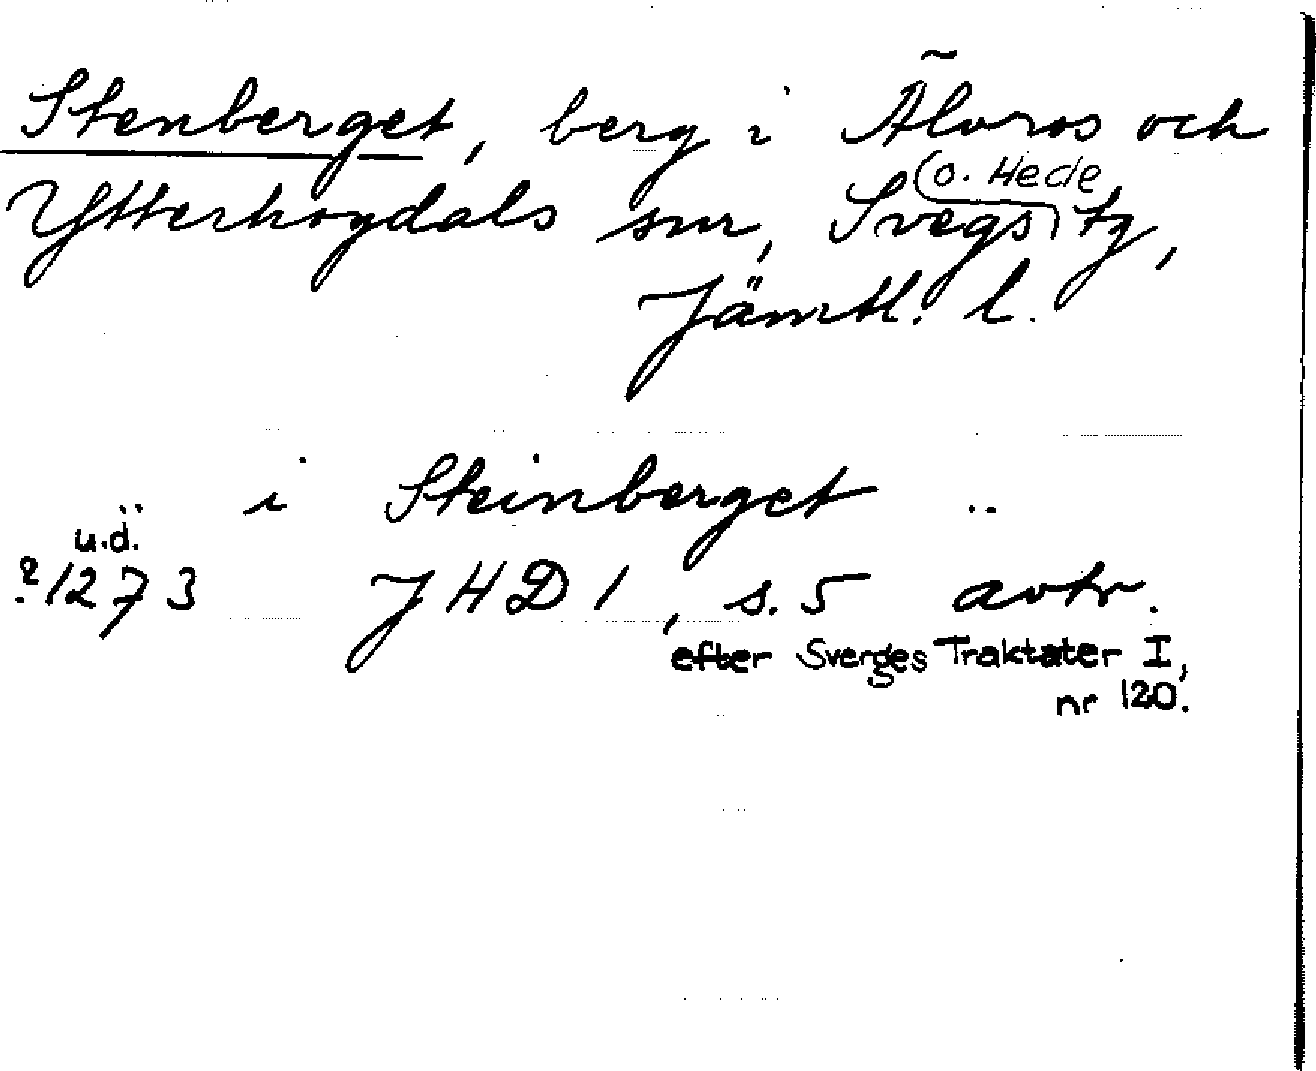 Stenberget, berg i Älvros och
Ytterhogdals snr, Svegs (o. Hede) tg,
Jämtl. l.
.. i Steinberget ..
u.d.
?1273 JHD 1, s. 5 avtr.
efter Sverges Traktater I,
nr 120.